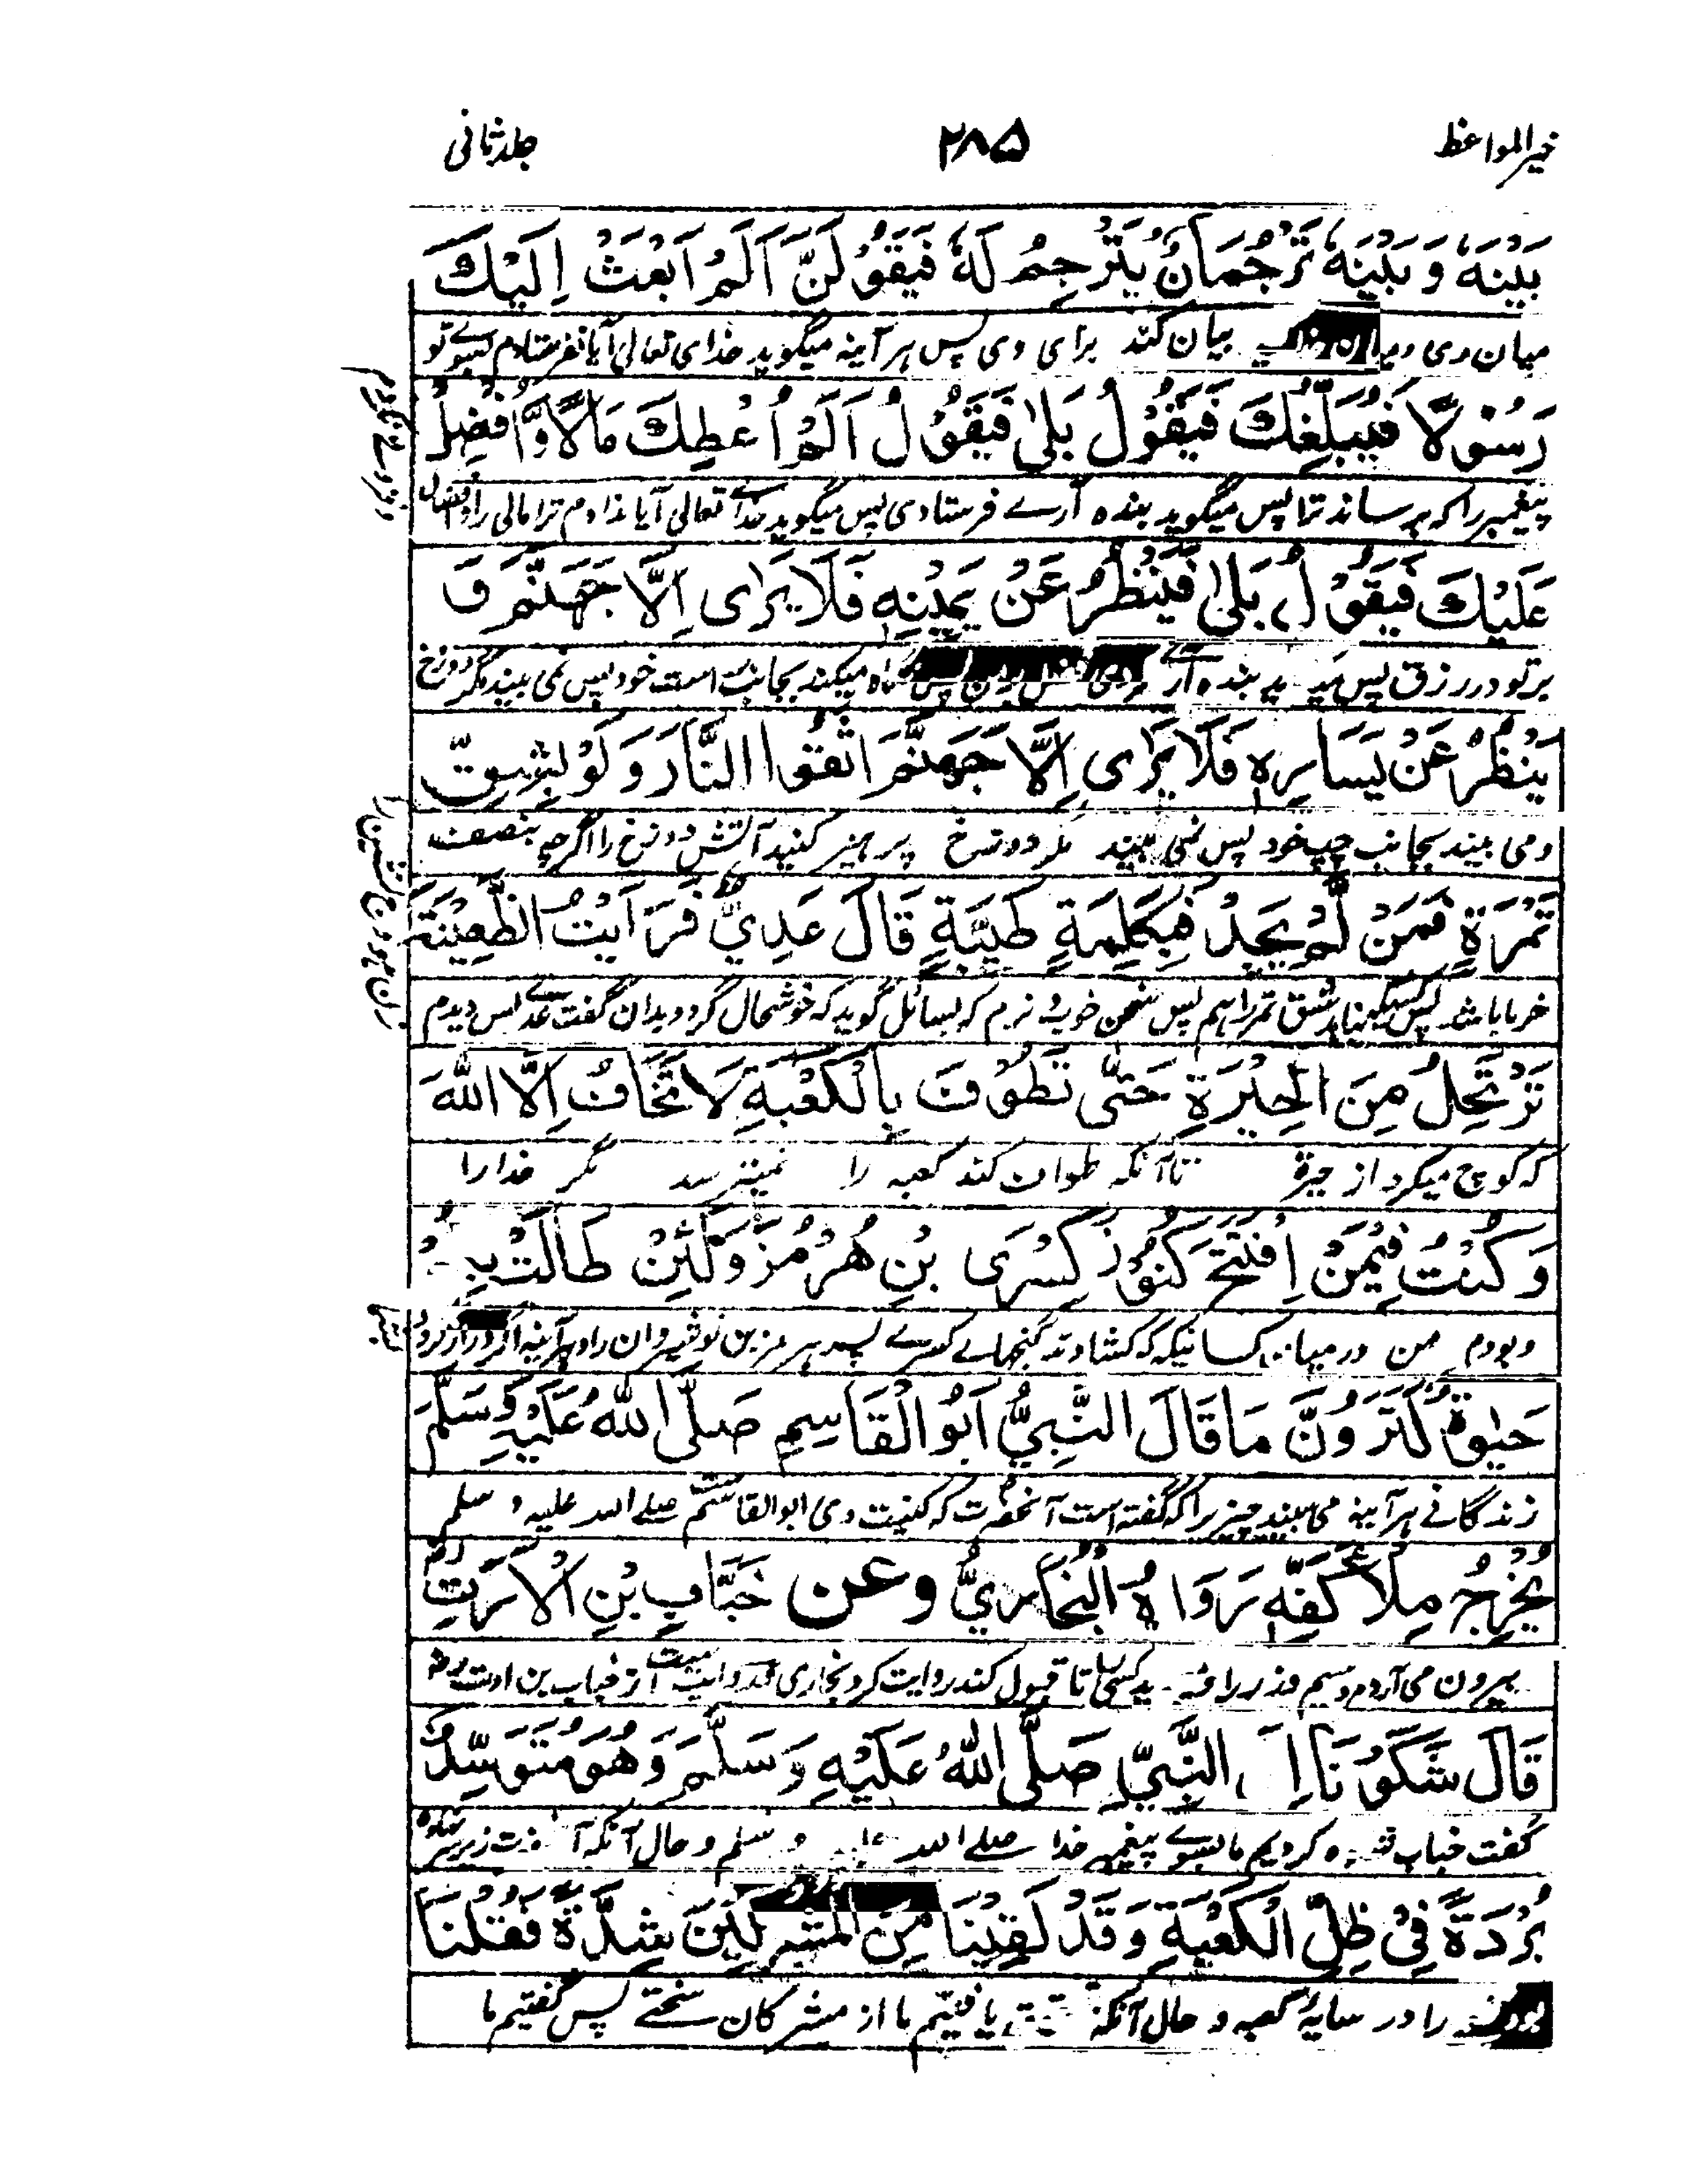 خیرالمواعظ ۲۸۵ جلد ثانی
بَيْنَهٗ وَ بَيْنَهٗ تَرْجُمَانٌ يُتَرْجِمُ لَهٗ فَيَقُوْلَنَّ اَلَمْ اَبْعَثْ اِلَيْكَ
میان وی و بیان کند برای وی پس هر آینه میگوید خدای تعالی آیا نفرستادم بسوے تو
رَسُوْلًا فَيُبَلِّغُكَ فَيَقُوْلُ بَلٰى فَيَقُوْلُ اَلَمْ اُعْطِكَ مَالًا وَّ اُفْضِلْ
پیغمبر را که برساند ترا پس میگوید بنده آرے فرستادی پس میگوید خداے تعالی آیا ندادم ترا مالی را
عَلَيْكَ فَيَقُوْلُ بَلٰى فَيَنْظُرُ عَنْ يَمِيْنِهٖ فَلَا يَرٰى اِلَّا جَهَنَّمَ وَ
بر تو در رزق پس بنده آرے میکند بجانب راست خود پس نمی بیند مگر دوزخ
يَنْظُرُ عَنْ يَسَارِهٖ فَلَا يَرٰى اِلَّا جَهَنَّمَ اتَّقُوا النَّارَ وَ لَوْ بِشِقِّ
و می بیند بجانب چپ خود پس نمی بیند مگر دوزخ پرهیز کنید آتش دوزخ را اگرچه بنصف
تَمْرَةٍ فَمَنْ لَّمْ يَجِدْ فَبِكَلِمَةٍ طَيِّبَةٍ قَالَ عَدِيٌّ فَرَاَيْتُ الظَّعِيْنَةَ
خرما باشد پس کسیکه نیابد شق تمر را هم پس سخن خوب و نرم که بسائل گوید که خوشحال گردد بدان گفت عدے پس دیدم
تَرْتَحِلُ مِنَ الْحِيْرَةِ حَتّٰى تَطُوْفَ بِالْكَعْبَةِ لَا تَخَافُ اِلَّا اللّٰهَ
که کوچ میکرد از حیرة تا آنکه طواف کند کعبه را نمیترسد مگر خدا را
وَ كُنْتُ فِيْمَنْ اِفْتَتَحَ كُنُوْزَ كِسْرٰى بْنِ هُرْمُزَ وَ لَئِنْ طَالَتْ
و بودم من در میان کسانیکه که کشادند گنجهاے کسرے پسر هرمز بن نوشیروان را و هر آینه اگر دراز گردد
حَيٰوةٌ لَتَرَوُنَّ مَا قَالَ النَّبِيُّ اَبُو الْقَاسِمِ صَلَّى اللّٰهُ عَلَيْهِ وَسَلَّمَ
زندگانے هر آینه می بیند چیزیرا که گفته است آنحضرت که کنیت وی ابوالقاسم ست صلے الله علیه و سلم
يُخْرِجُ مِلْأَ كَفِّهٖ رَوَاهُ الْبُخَارِيُّ وعن خَبَّابِ بْنِ الْاَرَتِّ رض
بیرون می آرد تا قبول کند روایت کرد بخاری و روایت ست از خباب بن ارت رض
قَالَ شَكَوْنَا اِلَى النَّبِيِّ صَلَّى اللّٰهُ عَلَيْهِ وَسَلَّمَ وَ هُوَ مُتَوَسِّدٌ
گفت خباب کردیم ما بسوے پیغمبر خدا صلے الله و سلم و حال آنکه زیر سر
بُرْدَةً فِيْ ظِلِّ الْكَعْبَةِ وَ قَدْ لَقِيْنَا مِنَ الْمُشْرِكِيْنَ شِدَّةً فَقُلْنَا
را در سایۀ کعبه و حال آنکه یافتیم ما از مشرکان سختے پس گفتیم ما